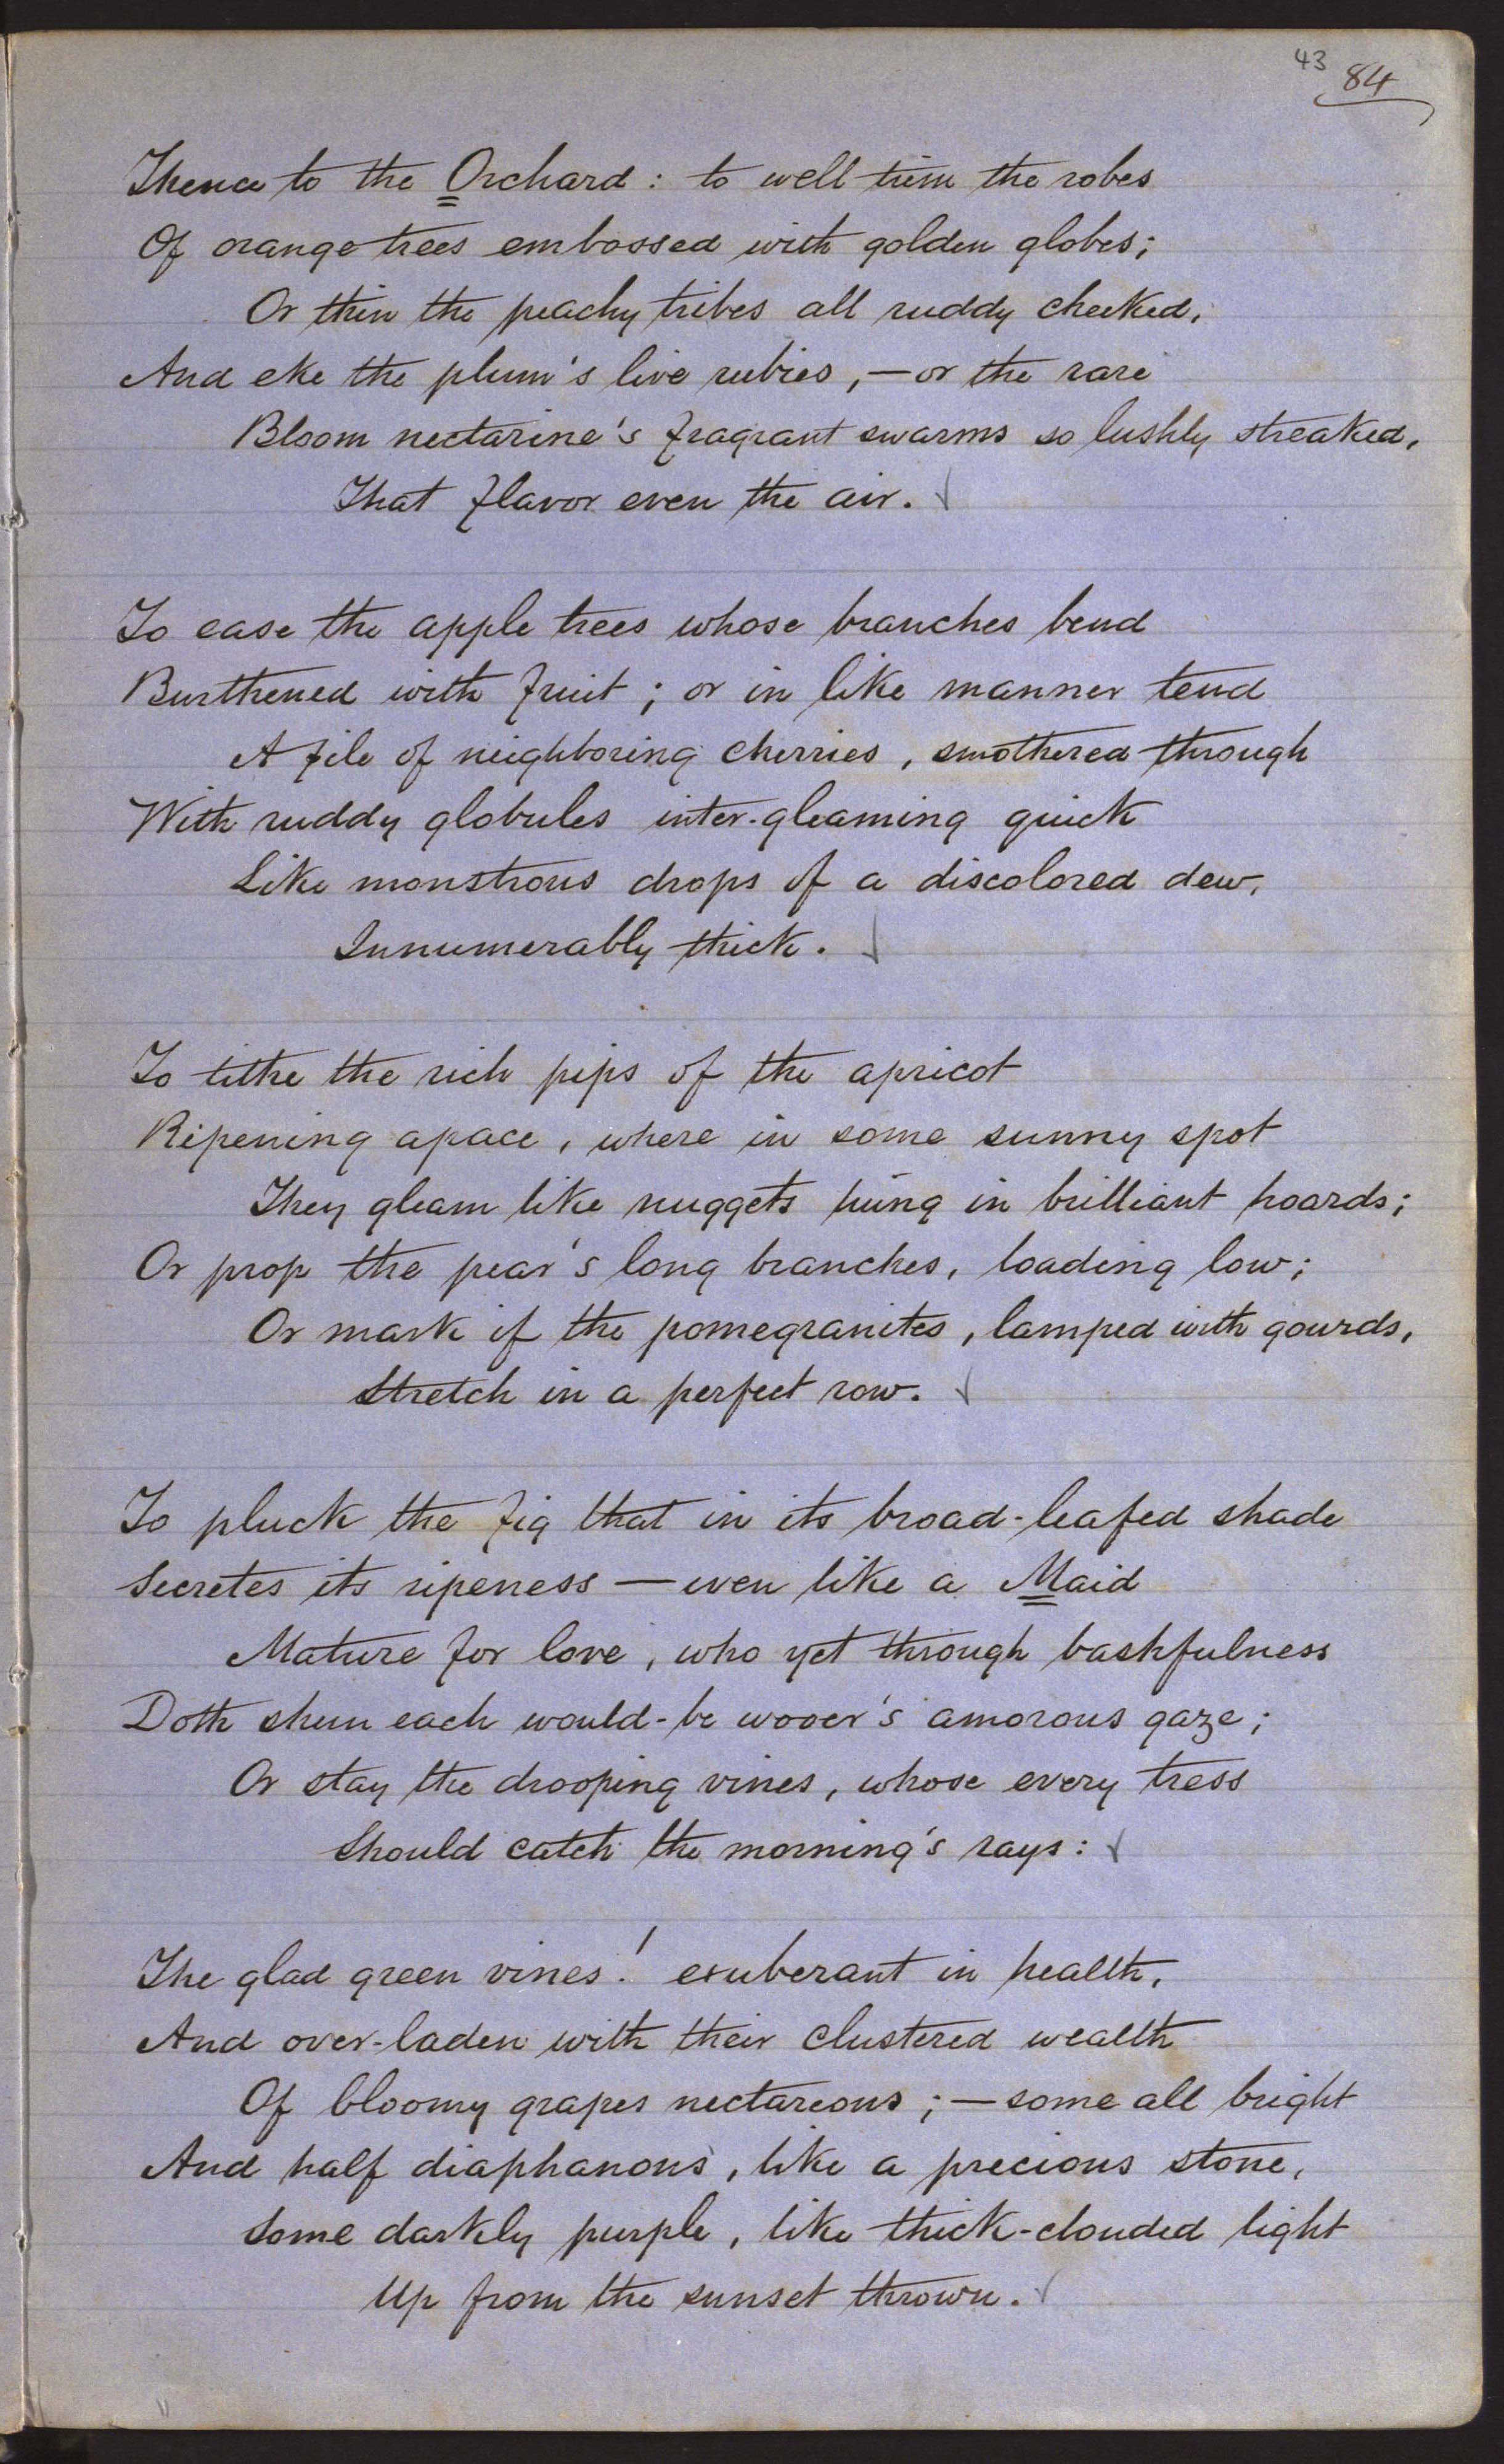 43
84
Thence to the Orchard: to well trim the robes
Of orange trees embossed with golden globes;
Or thin the peachy tribes all ruddy cheeked,
And eke the plum's live rubies,—or the rare
Bloom nectarine's fragrant swarms so lushly streaked,
That flavor even the air.
To ease the apple trees whose branches bend
Burthened with fruit; or in like manner tend
A file of neighboring cherries, smothered through
With ruddy globules inter-gleaming quick
Like monstrous drops of a discolored dew,
Innumerably thick.
To tithe the rich pips of the apricot
Ripening apace, where in some sunny spot
They gleam like nuggets hung in brilliant hoards;
Or prop the pear's long branches, loading low;
Or mark if the pomegranites, lamped with gourds,
Stretch in a perfect row.
To pluck the fig that in its broad-leafed shade
Secretes its ripeness—even like a Maid
Mature for love, who yet through bashfulness
Doth shun each would-be wooer's amorous gaze;
Or stay the drooping vines, whose every tress
Should catch the morning's rays:
The glad green vines! exuberant in health,
And over-laden with their clustered wealth
Of bloomy grapes nectareous;—some all bright
And half diaphanous, like a precious stone,
Some darkly purple, like thick-clouded light
Up from the sunset thrown.